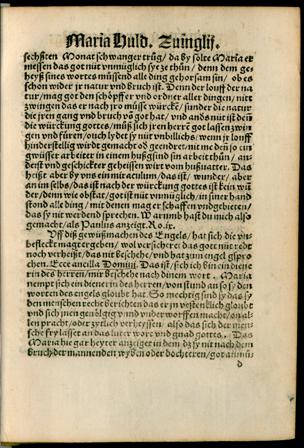 Maria Huld. Zuinglij.
sechsten Monat schwanger trüg/ da by solte Maria er
messen das got nüt vnmüglich sye ze thůn/ denn dem ge
heyß sines wortes müssend alle ding gehorsam sin/ ob es
schon wider jr natur vnd bruch ist. Denn der louff der na
tur/ mag got den schöpffer vnd ordner aller dingen/ nitt
zwingen das er nach jro müsse würcke/ sunder die natur
die jren gang vnd bruch võ got hat/ vnd ãnõ nüt ist denn
die würckung gottes/ můß sich jren herrẽ got lassen wisen
gen vnd füren/ ouch lydet sy nüt vnbillichs/ wenn jr louff
hinderstellig wirdt gemacht oð geendret/ nit me denn so
gwüsser arbeiter in einem hußgsind sin arbeit thůn/
derst vnd geschickter geheissen wirt vom hußuatter. Das
heißt aber by vns ein miraculum/ das ist/ wunder/ aber
an im selbs/ das ist nach der würckung gottes ist kein wũ
der/ denn wie obstat/ got ist nüt vnmüglich/ in siner hand
stond alle ding/ mit denen mag er schaffen vnd gebieten/
das sy nit werdend sprechen. Warumb hast du mich also
gemacht/ als Paulus anzeigt. Ro.ix.
Uff diß gewüß machen des Engels/ hat sich die vn
befleckt magt ergeben/ wol versicheret das gott nüt redt
noch verheißt/ das nit beschehe/ vnd hat zum engel gspro
chen. Ecce ancilla Domini. Das ist/ sich ich bin ein diene
rin des herren/ mir beschehe nach dinem wort. Maria
nempt sich ein dienerin des herren/ von stund an so sy den
worten des engels gloubt hat. So mechtig sind jr das sy
den menschen recht berichtend das er in wesenlich gloubt
vnd sich jmen geuölgig vnd vnderworffen macht/ on al
len pracht/ oder zytlich verheyssen/ also das sich der men
sche fry lasset an das luter wort vnd gnad gottes. Das
Maria hie gar heyter anzeiget in dem/ dz sy nit nach dem
bruch der mannenden wyben oder döchteren/
d